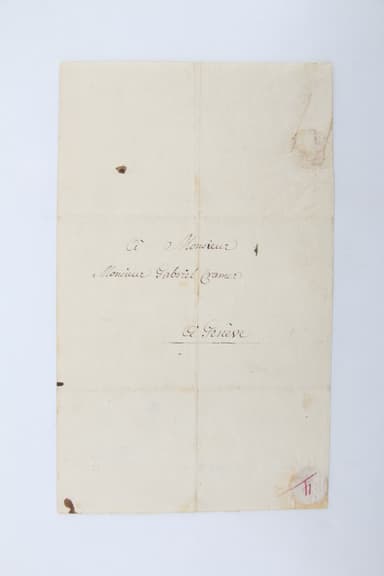 A Monsieur
Monsieur Gabriel Cramer
A Genève
11